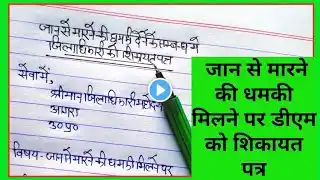 जान से मारने की धमकी देने के सम्बन्ध में
जिलाधिकारी को शिकायत पत्र
सेवा में,
श्रीमान जिलाधिकारी महोदय
आगरा
उ०प्र०
विषय- जान से मारने की धमकी मिलने पर
जान से मारने
की धमकी
मिलने पर डीएम
को शिकायत
पत्र